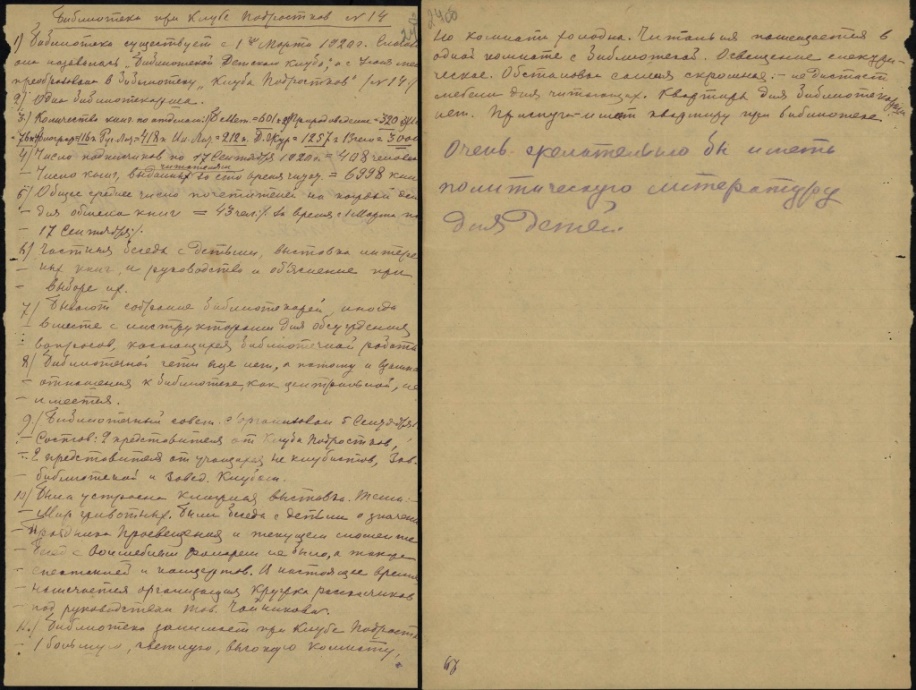 Библиотека при Клубе Подростков № 14
1) Библиотека существует с 1го Марта 1920 г. Сначала
она называлась „Библиотекой Детского Клуба", а с Июня
преобразована в Библиотеку „Клуба Подростков" (№ 14)
2) Один библиотекарь.
3) Количество книг по отделам: = 601
Рус. Лит. = 418 Ин. Лит. = 212 = 1257
4) Число подписчиков по 17 Сентября 1920 г. = 408 человек
читателям
– Число книг, выданных за это время = 6998 книг
5) Общее среднее число посетителей на каждый день
– для обмена книг = 43 чел. (за время с 1 Марта по
– 17 Сентября).
6) Частная беседа с детьми, выставка интерес-
– ных книг, и руководство и объяснение при
– выборе их.
7) Бывают собрания библиотекарей, иногда
– вместе с инструкторами для обсуждения
вопросов, касающихся библиотечной работы
8) Библиотечной сети еще нет, а потому и
– отношения к библиотеке как центральной, не
– имеется.
9) Библиотечный совет организован 5 Сентября
– Состав: 2 представителя от Клуба Подростков,
– 2 представителя от учащихся не клубистов, Зав.
– библиотекой и Завед. Клубом.
10) Была устроена книжная выставка. Тема:
– Мир животных. Были беседы с детьми о значении
– Праздника Просвещения и текущем моменте
– Бесед с Волшебным фонарем не было, а также
– спектаклей и концертов. В настоящее время
– намечается организация кружка рассказчиков
– под руководством тов. Чайникова.
11) Библиотека занимает при Клубе Подростков
– 1 большую, светлую, высокую комнату,
2460
Но комната холодна. Читальня помещается в
одной комнате с библиотекой. Освещение электри-
ческое. Обстановка самая скромная – не достает
мебели для читающих. Квартиры для библиотекарши
нет. Прислуга имеет квартиру при библиотеке
Очень желательно бы иметь
политическую литературу
для детей.
67